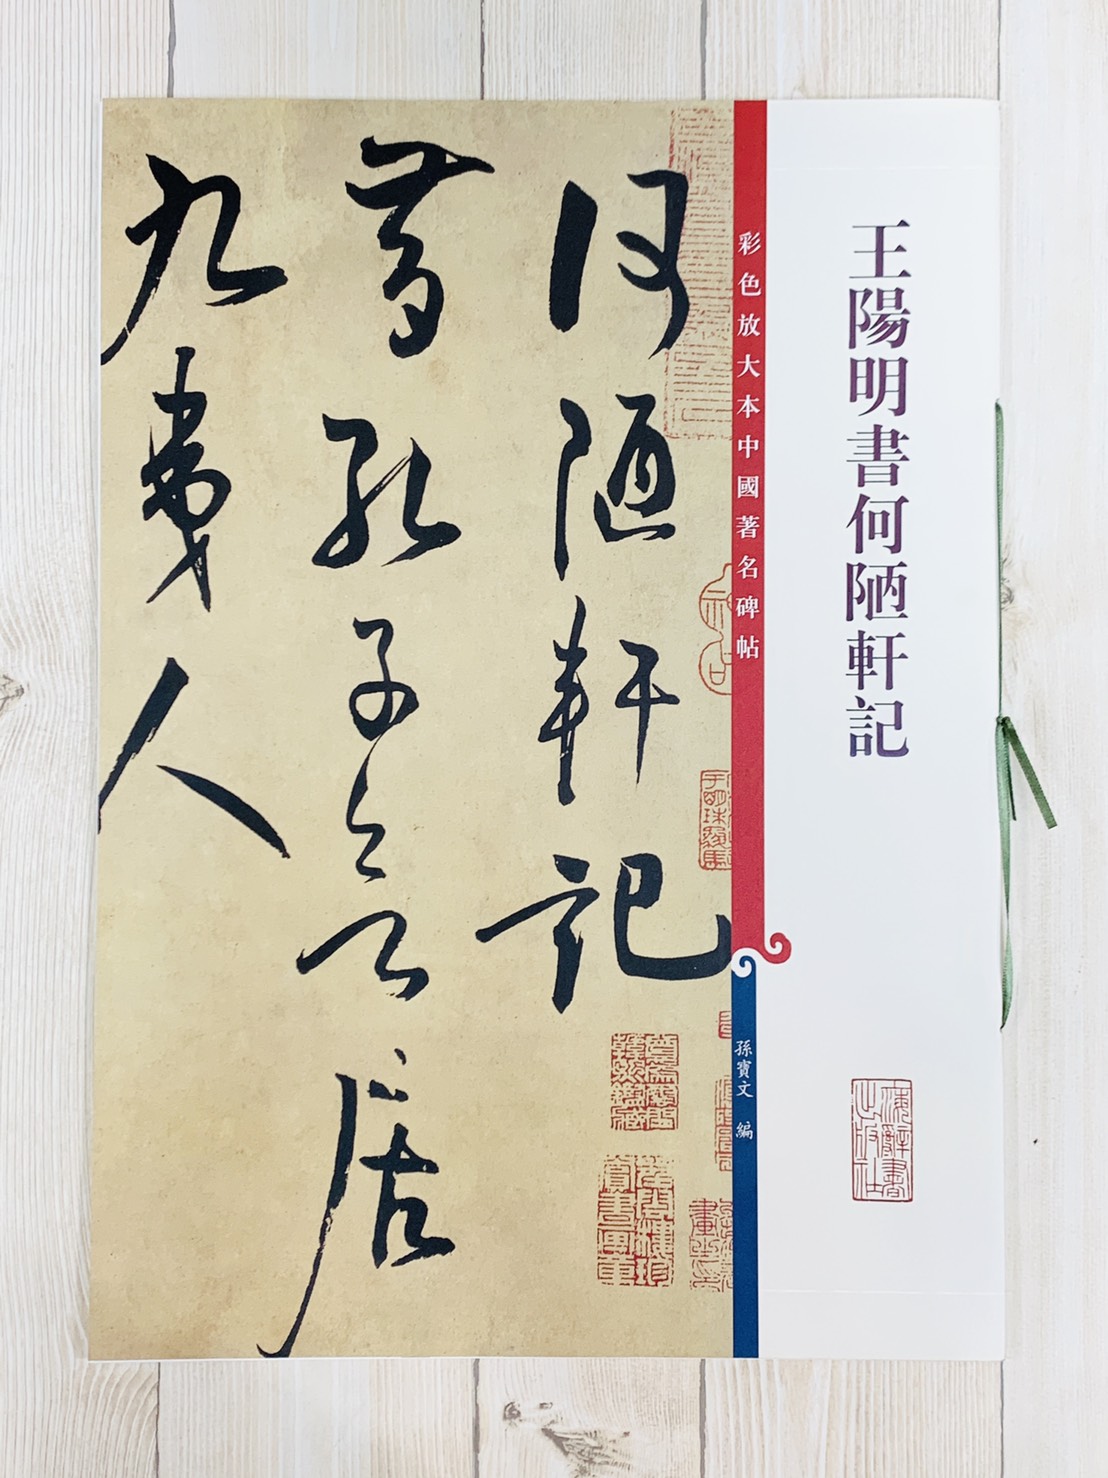 王陽明書何陋軒記
彩色放大本中國著名碑帖
孫寶文 編
海辭書出版社
何陋軒記
昔孔子欲居
九夷人